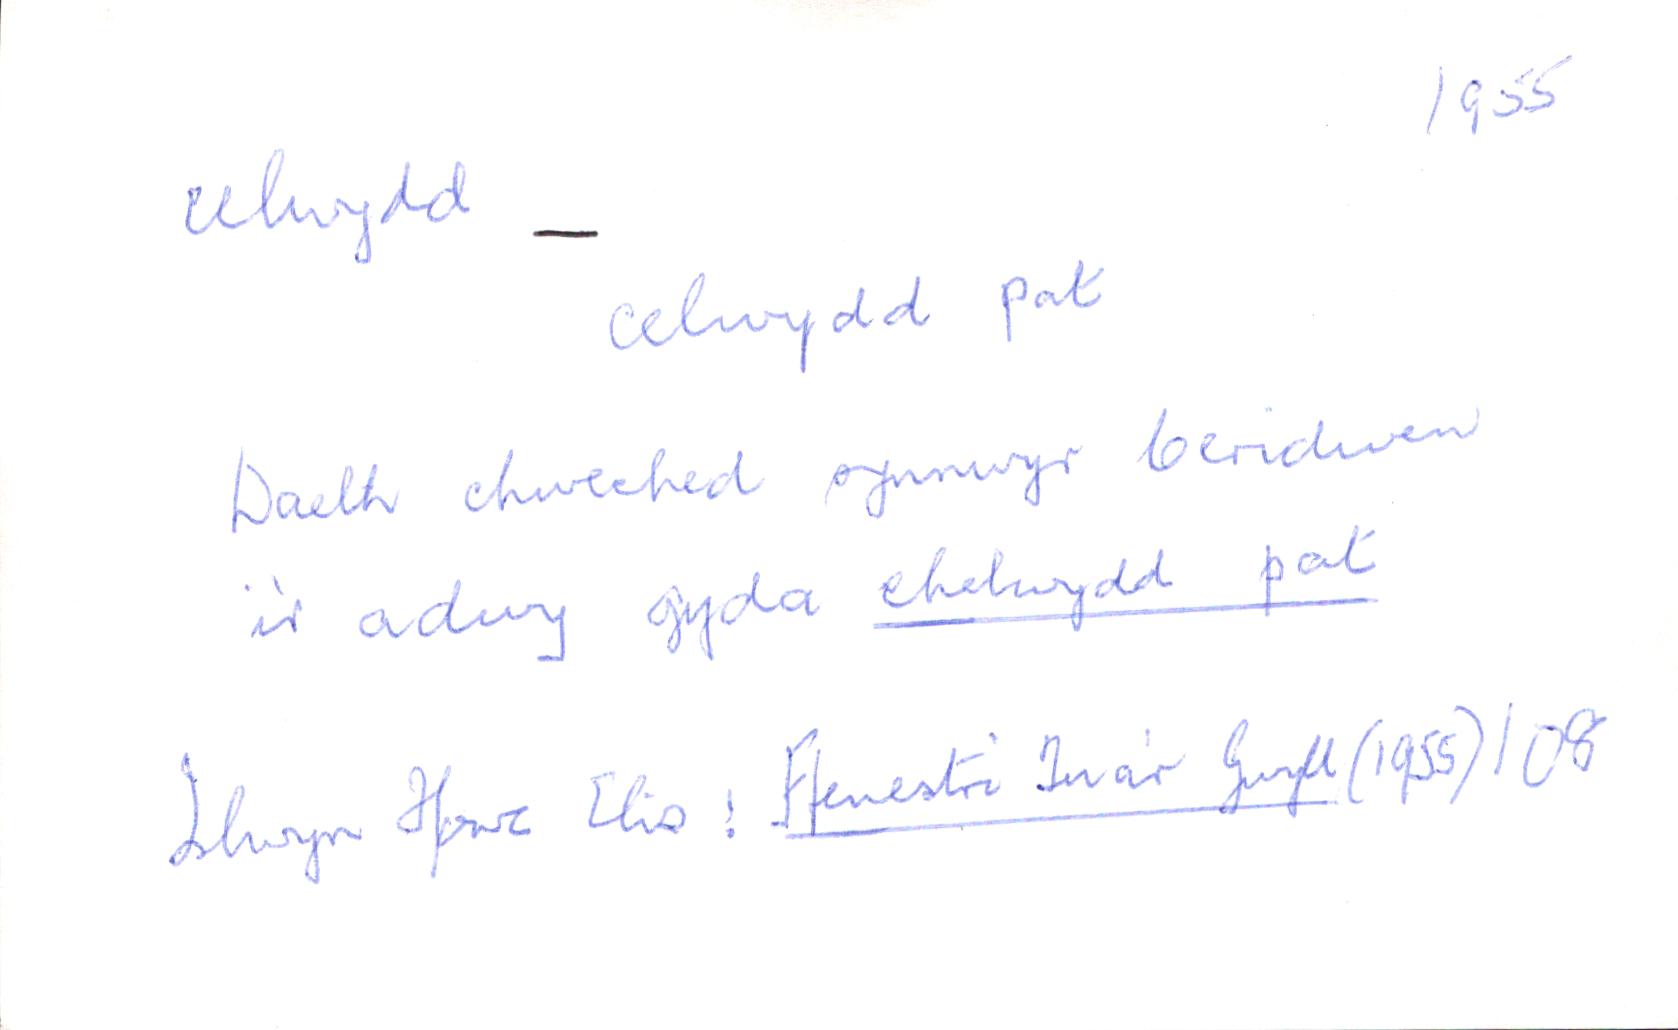 1955
celwydd —
celwydd pat
Daeth chweched synnwyr Ceridwen
i'r adwy gyda chelwydd pat
Islwyn Ffowc Elis : Ffenestri Tua'r Gwyll (1955) 108